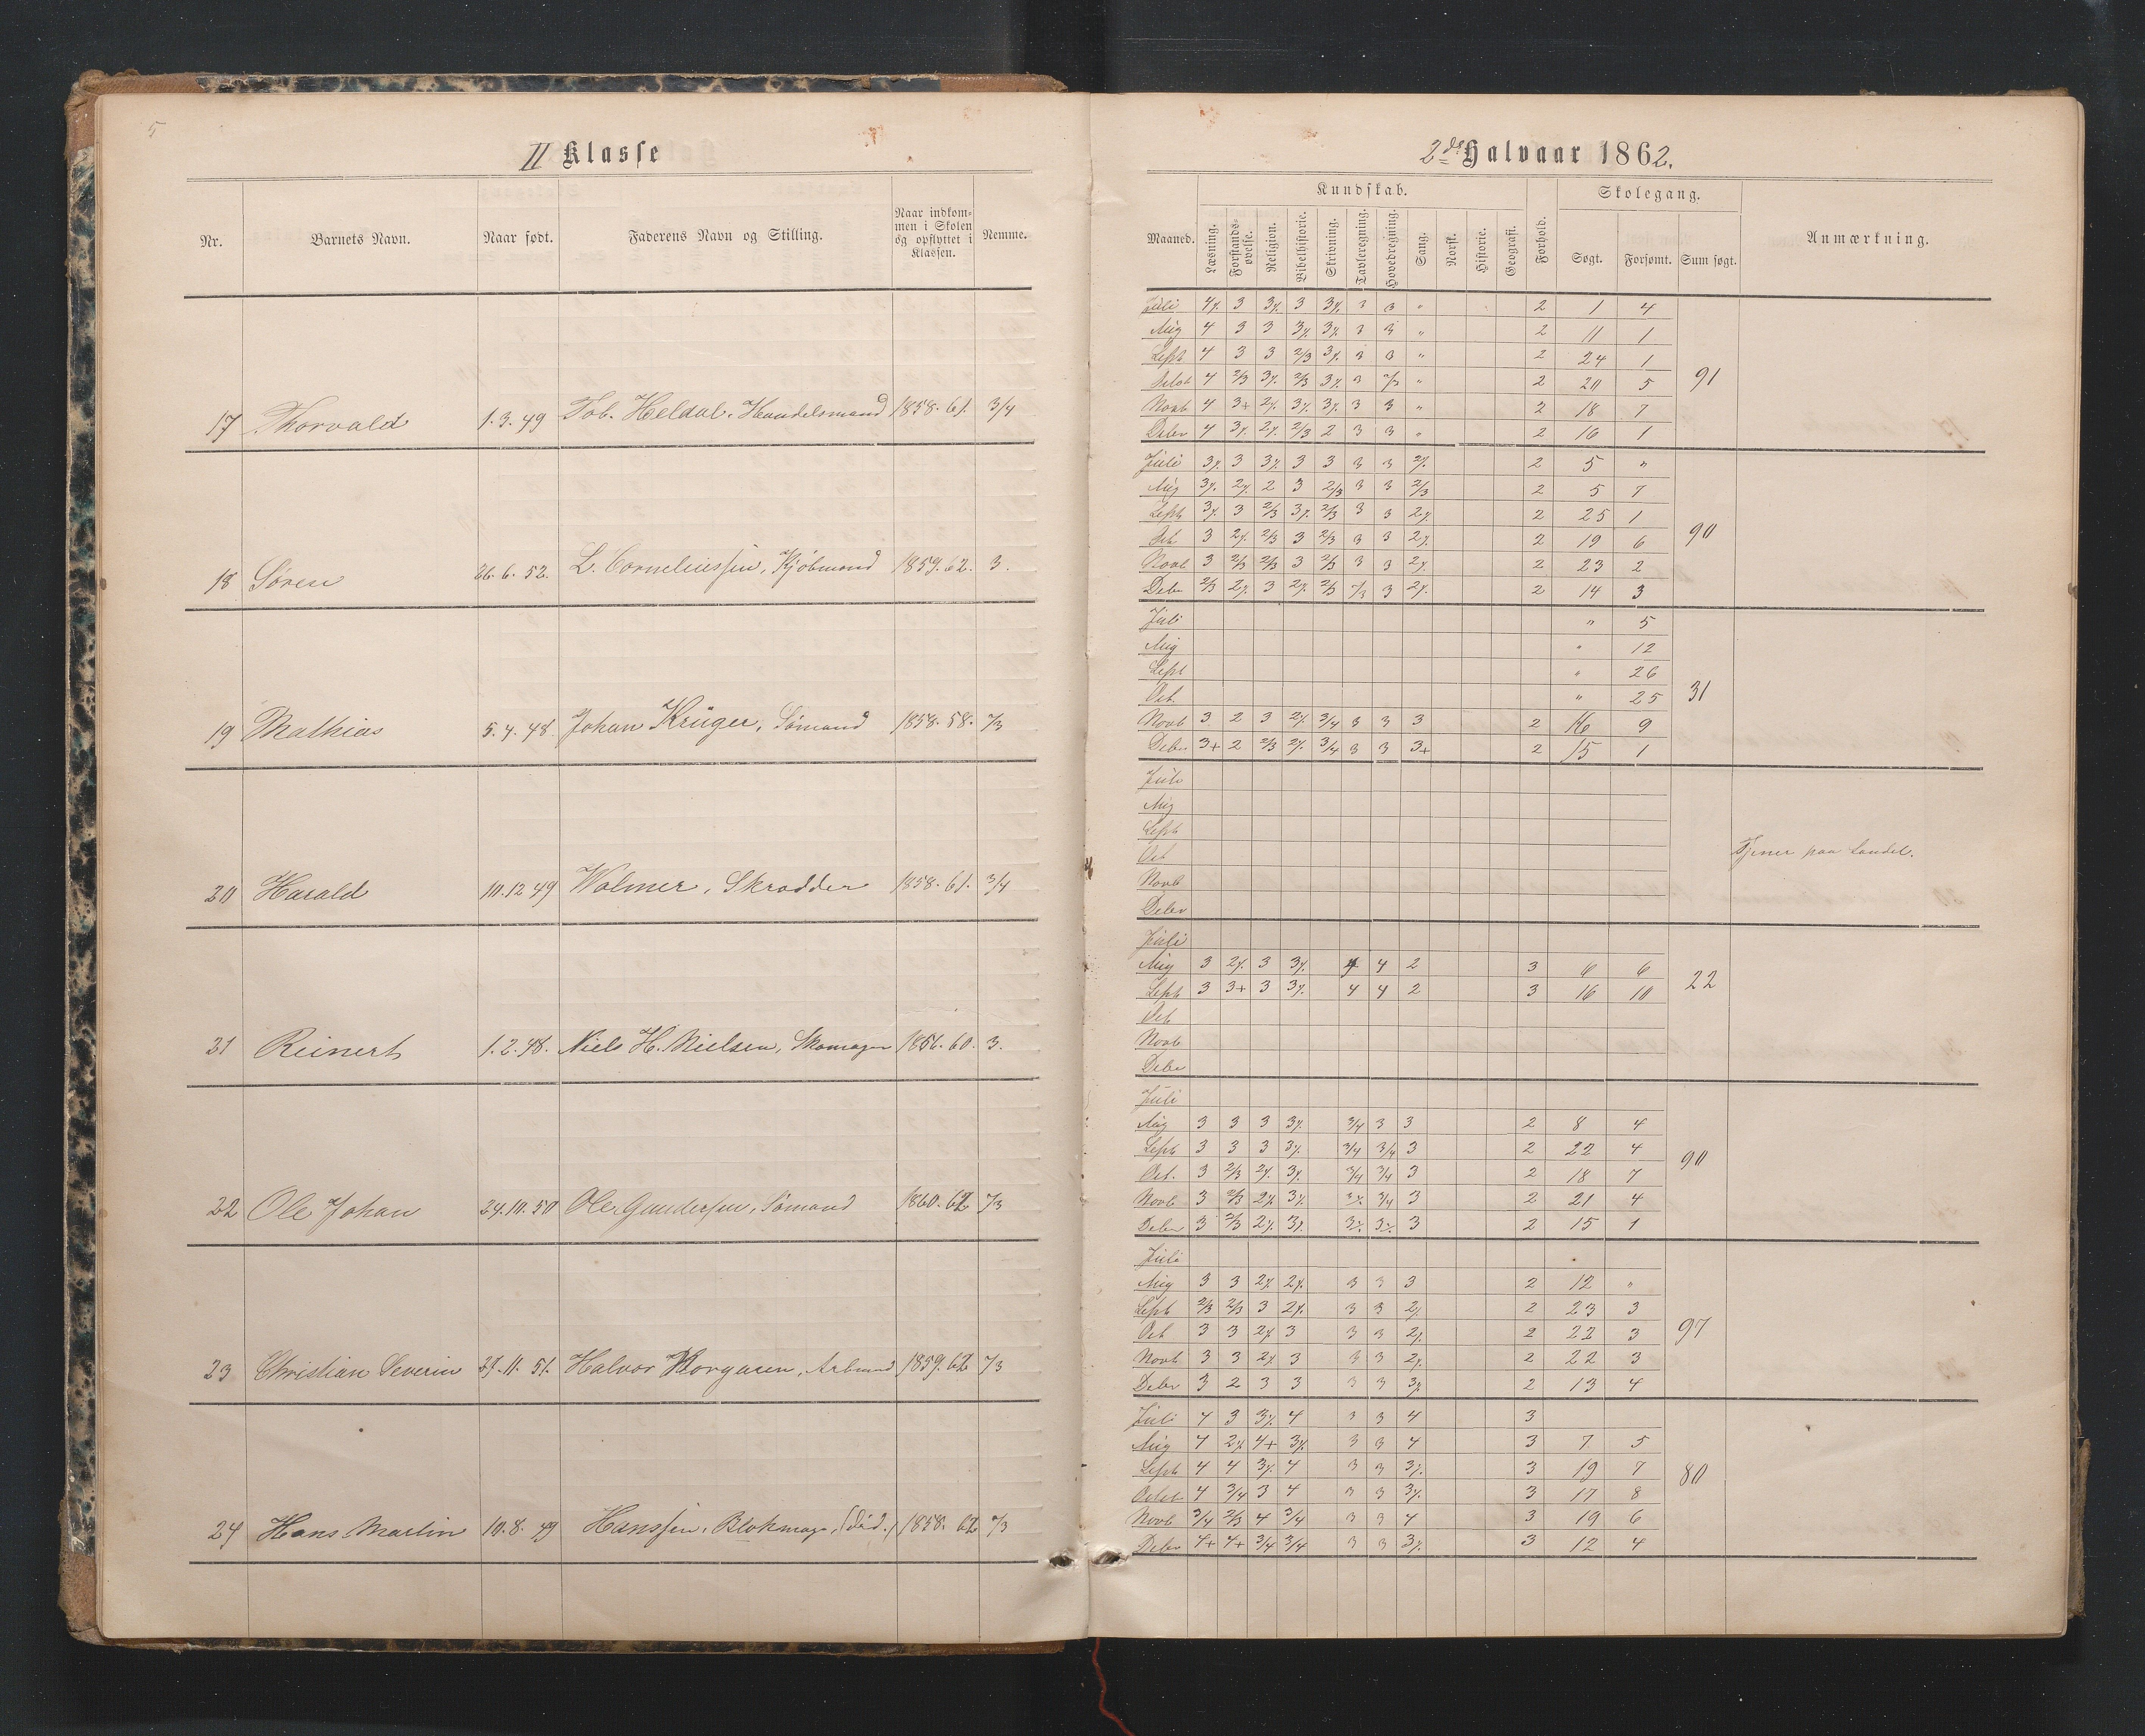 5
II Klasse
Nr. Barnets Navn. Naar født. Faderens Navn og Stilling. Naar indkom-
men i Skolen
og opflyttet i
Klassen. Nemme.
17 Thorvald 1.3.49 Tob. Heldal, Handelsmand 1858.61. 3/4
18 Søren 26.6.52. L. Corneliussen, Kjøbmand 1859.62. 3.
19 Mathias 5.4.48. Johan Krüger, Sømand 1858.58. 2/3
20 Harald 10.12 49 Wolmer, Skrædder 1858.61. 3/4
21 Reinert 1.2.48. Niels H. Nielsen, Skomager 1856.60. 3.
22 Ole Johan 24.10.50 Ole Gundersen, Sømand 1860.62 2/3
23 Christian Severin 11.51. Halvor 1859.62 2/3
24 Hans Martin 10.8.49 Hanssen, Blokmag, (død.) 1858.62 2/3
2det Halvaar 1862.
Kundskab. Skolegang.
Maaned. Læsning. Forstands-
øvelse. Religion. Bibelhistorie. Skrivning. Tavleregning. Hovedregning. Sang. Norsk. Historie. Geografi. Forhold. Søgt. Forsømt. Sum søgt. Anmærkning.
Juli 4% 3 3% 3 3% 3 3 " 2 1 4
Aug 4 3 3 3% 3% 3 3 " 2 11 1
Sept 4 3 3 2/3 3% 3 3 " 2 24 1
Octob 4 2/3 3% 2/3 3% 3 2/3 " 2 20 5 91
Novb 4 3+ 2% 3% 3% 3 3 " 2 18 7
Decbr 4 3% 2% 2/3 2 3 3 " 2 16 1
Juli 3% 3 3% 3 3 3 3 2% 2 5 "
Aug 3% 2% 2 3 2/3 3 3 2/3 2 5 7
Sept 3% 3 2/3 3% 2/3 3 3 2% 2 25 1
Oct 3 2% 2/3 3 2/3 3 3 2% 2 19 6 90
Novb 3 2/3 2/3 3 2/3 3 3 2% 2 23 2
Decbr 2/3 2% 3 2% 2/3 2/3 3 2% 2 14 3
Juli " 5
Aug " 12
Sept " 26
Oct " 25 31
Novb 3 2 3 2% 3/4 3 3 3 2 16 9
Decbr 3+ 2 2/3 2% 3/4 3 3 3+ 2 15 1
Juli
Aug
Sept
Oct Tjener paa Landet.
Novb
Decbr
Juli
Aug 3 2% 3 3% 4 4 2 3 6 6
Sept 3 3+ 3 3% 4 4 2 3 16 10 22
Oct
Novb
Decbr
Juli
Aug 3 3 3 3% 3/4 3 3 2 8 4
Sept 3 3 3 3% 3/4 3/4 3 2 22 4
Oct. 3 2/3 2% 3% 3/4 3/4 3 2 18 7 90
Novb 3 2/3 2% 3% 3% 3/4 3 2 21 4
Decbr 3 2/3 2% 3% 3% 3% 3 2 15 1
Juli
Aug 3 3 2% 2% 3 3 3 2 12 "
Sept 2/3 2/3 3 2% 3 3 2% 2 23 3
Oct 3 3 2% 3 3 3 2% 2 22 3 97
Novb 3 3 2% 3 3 3 2% 2 22 3
Decbr 3 2 3 3 3 3 3% 2 13 4
Juli 4 3 3% 4 3 3 4 3
Aug 4 2% 4+ 3% 3 3 4 3 7 5
Sept 4 4 3% 4 3 3 3% 3 19 7
Octob 4 3/4 3 4 3 3 3% 3 17 8 80
Novb 3/4 2/3 4 3/4 3 3 4 3 19 6
Decbr 4+ 4+ 3/4 3/4 3 3 3% 3 12 4